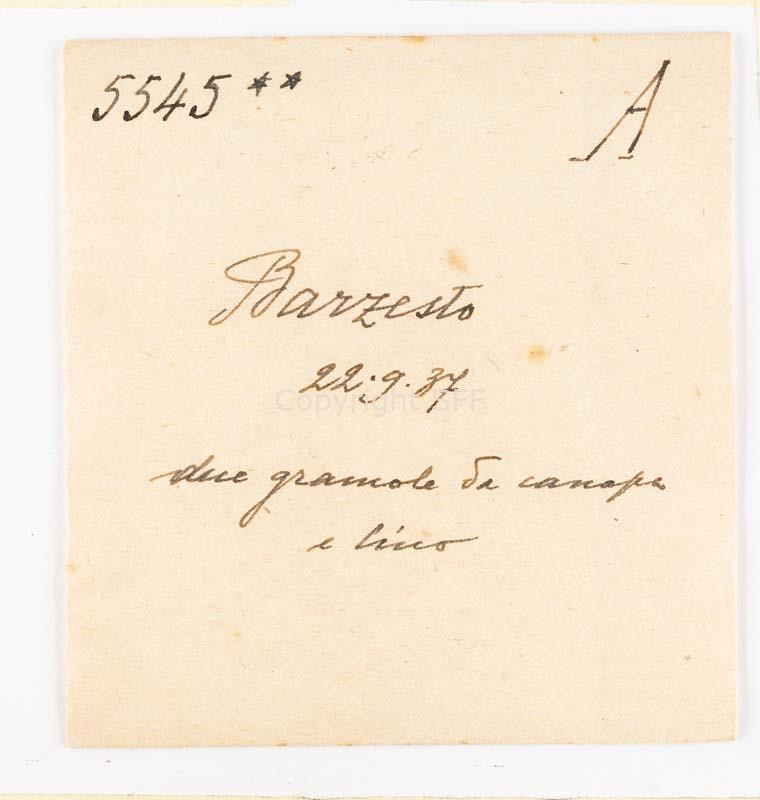 5545 ** A
Barzesto
22.9.37
Copyright SFF
due gramole da canapa
e lino